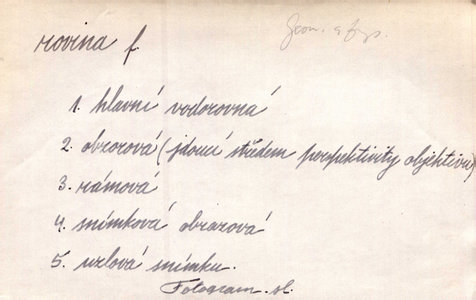 rovina f
Geom. a fys.
1. hlavní vodorovná
2. obzorová (jdoucí středem perspektivity objektivu)
3. rámová
4. snímková obrazová
5. uzlová snímku.
Fotogram. sl.